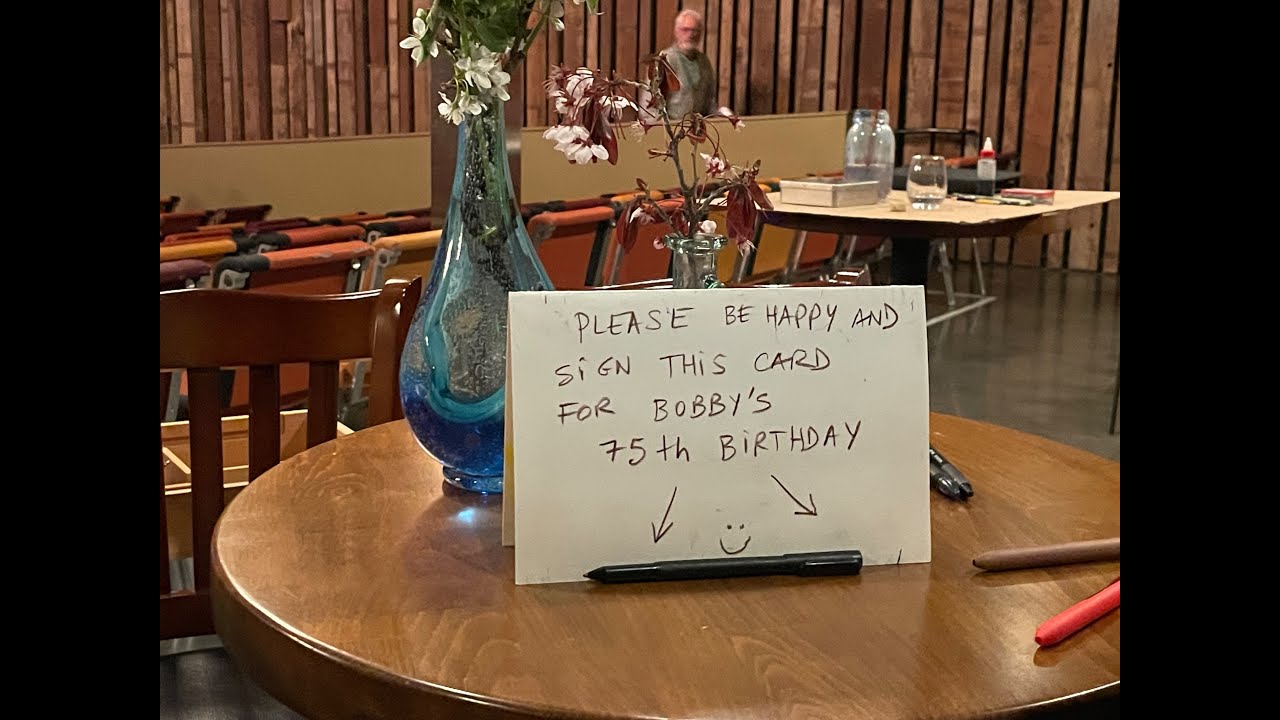 PLEASE BE HAPPY AND
SiGN THiS CARD
FOR BOBBY'S
75th BiRTHDAY